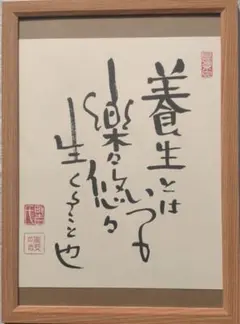 養生とは
いつも
楽々悠々
生くること也